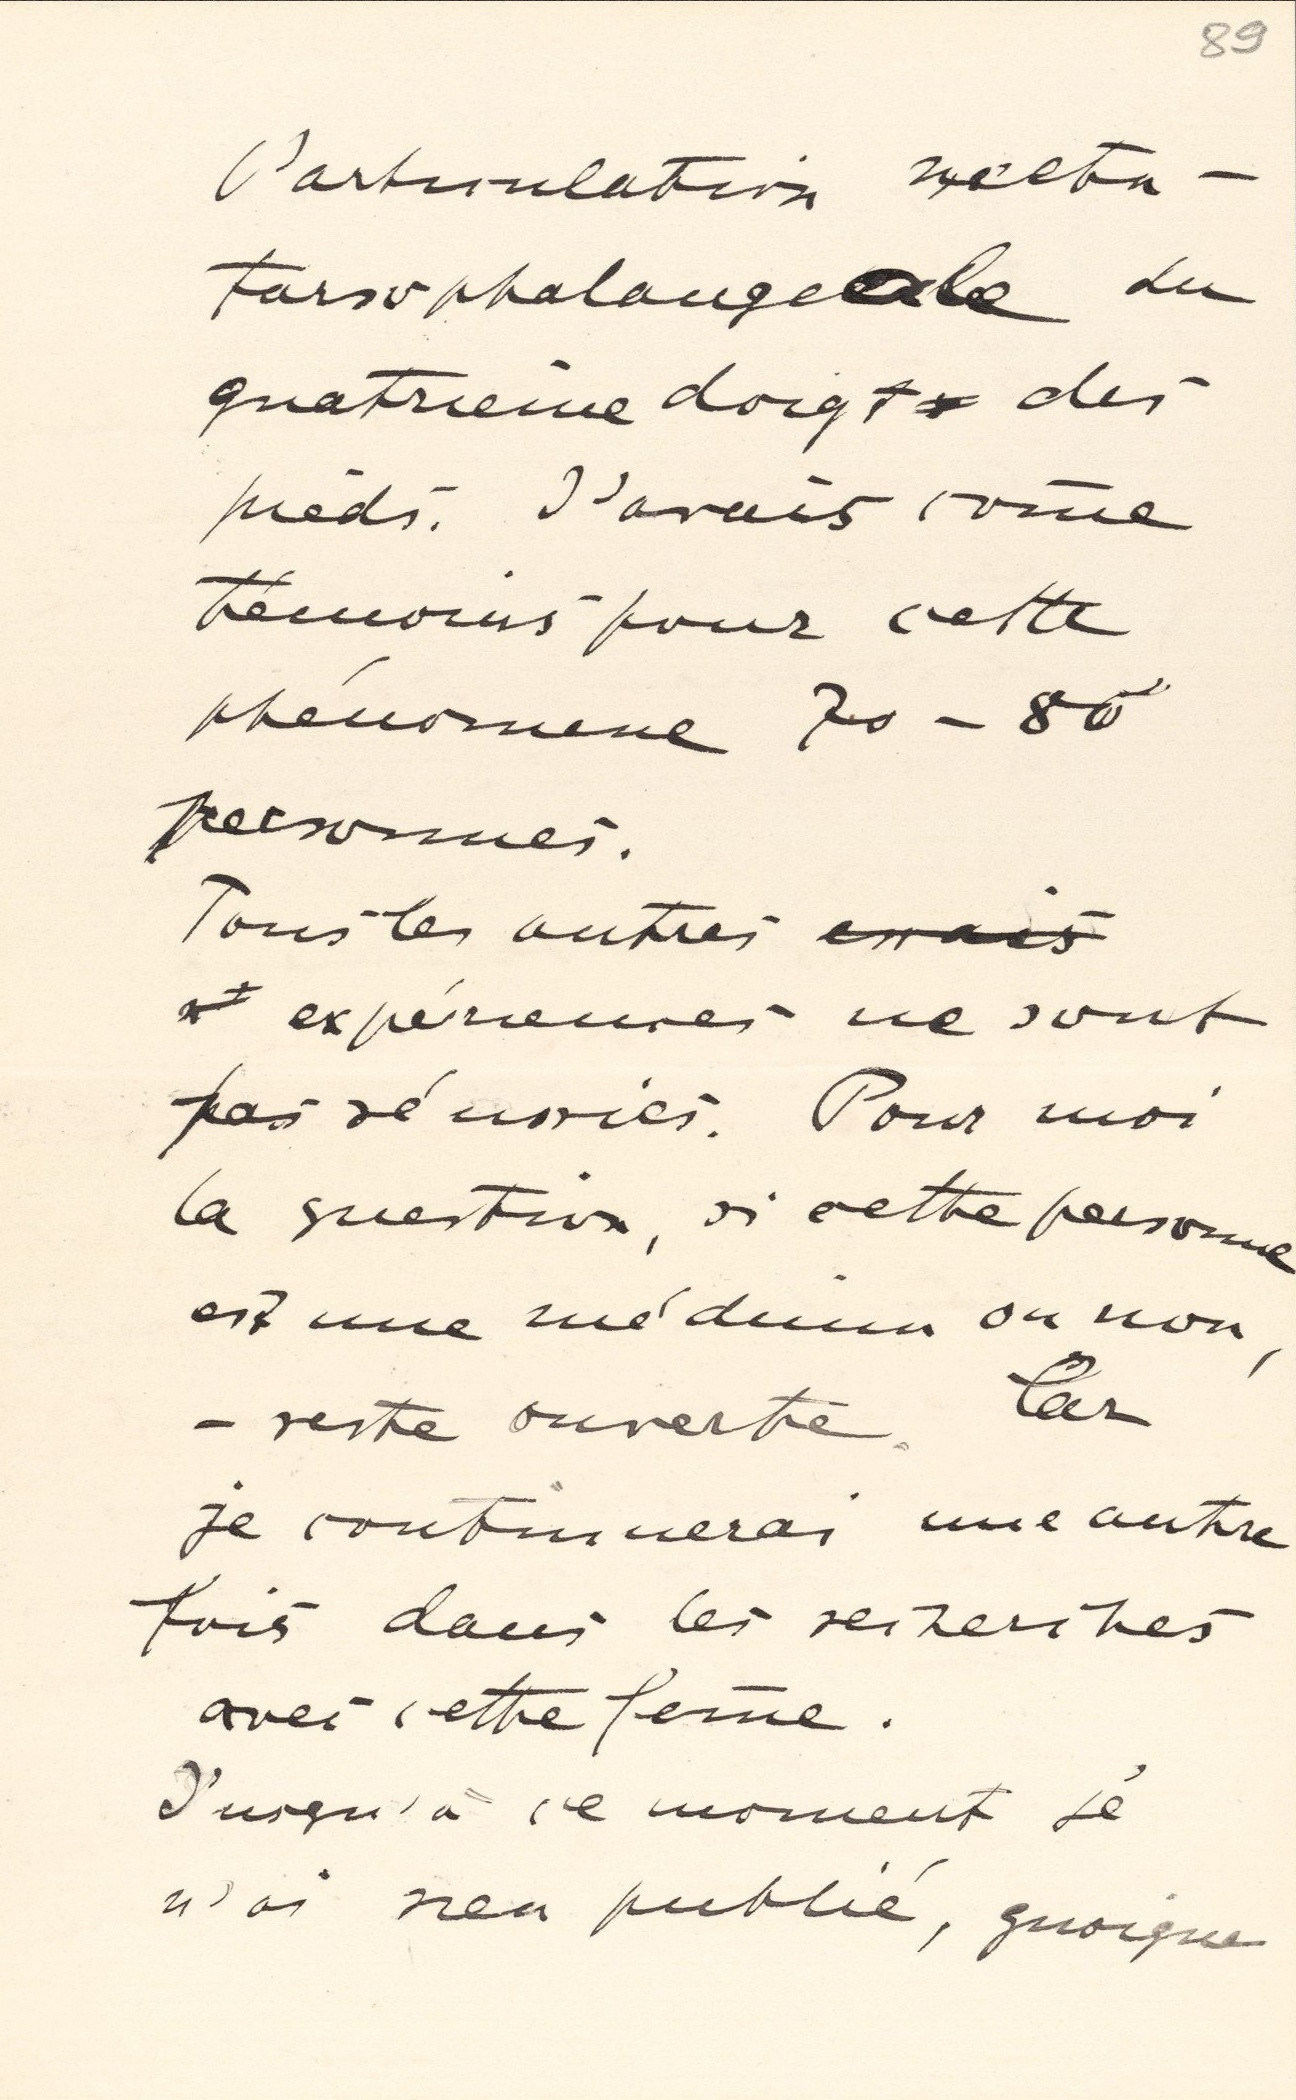 89
l'articulation meta-
tarsophalangeale du
quatrieme doigt des
pieds. J'avais com̄e
témoins pour cette
phénomene 70 - 80
personnes.
Tous les autres essais
et expériences ne sont
pas réussies. Pour moi
la question, si cette personne
est une médium ou non,
- reste ouverte. Car
je continuerai une autre
fois dans les recherches
avec cette fem̄e.
J'usqu'à ce moment je
n'ai rien publié, quoique